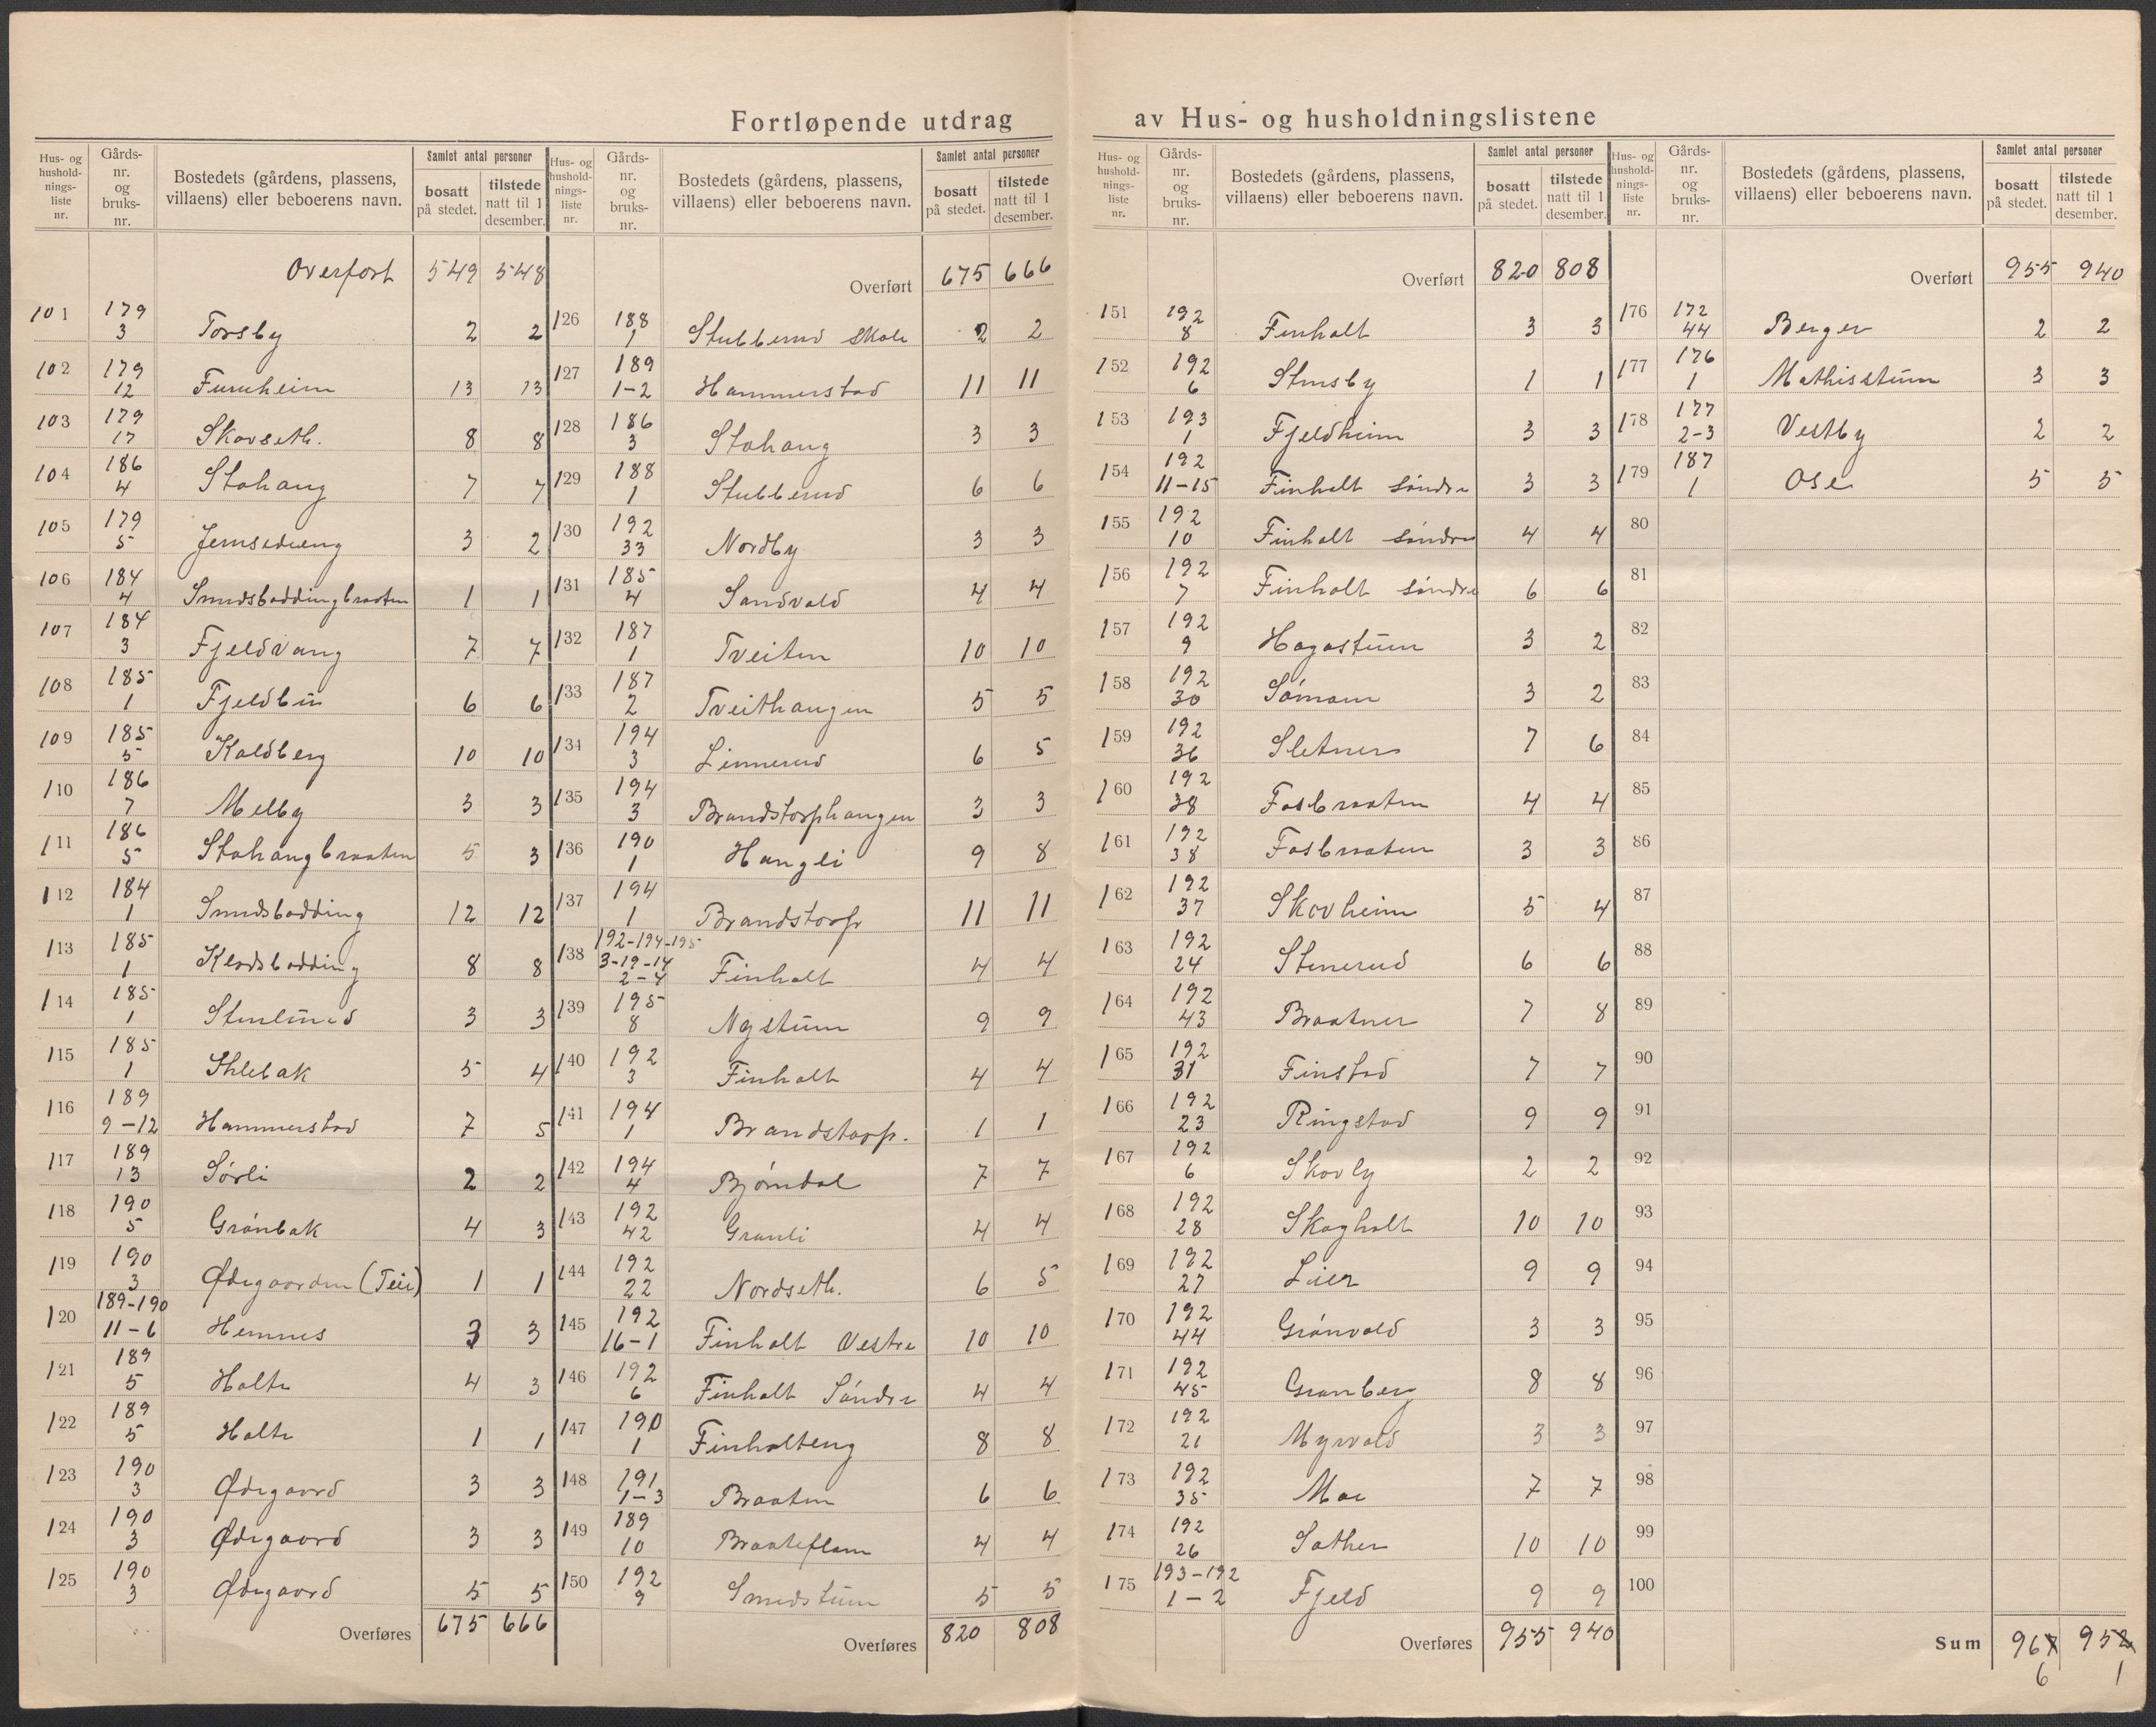 Fortløpende utdrag av Hus- og husholdningslistene
Hus- og husholdningsliste nr. | Gårds-nr. og bruks-nr. | Bostedets (gårdens, plassens, villaens) eller beboerens navn. | Samlet antal personer | bosatt på stedet. | tilstede natt til 1 desember.
Overført 549 548
101 179 3 Torsby 2 2
102 179 12 Furuheim 13 13
103 179 17 Skovseth. 8 8
104 186 4 Stahaug 7 7
105 179 5 3 2
106 184 4 Smedsbøddingbraaten 1 1
107 184 3 Fjeldvang 7 7
108 185 1 Fjeldbu 6 6
109 185 5 Koldberg 10 10
110 186 7 Melby 3 3
111 186 5 Stahaugbraaten 5 3
112 184 1 Smedsbødding 12 12
113 185 1 8 8
114 185 1 Stenlund 3 3
115 185 1 5 4
116 189 9-12 Hammerstad 7 5
117 189 13 Sørli 2 2
118 190 5 Grønbak 4 3
119 190 3 Ødegaarden (Teie) 1 1
120 189-190 11-6 Hemnes 3 3
121 189 5 Holte 4 3
122 189 5 Holte 1 1
123 190 3 Ødegaard 3 3
124 190 3 Ødegaard 3 3
125 190 3 Ødegaard 5 5
Overføres 675 666
Overført 675 666
126 188 1 Stubberud skole 2 2
127 189 1-2 Hammerstad 11 11
128 186 3 Stahaug 3 3
129 188 1 Stubberud 6 6
130 192 33 Nordby 3 3
131 185 4 Sandvold 4 4
132 187 1 Tveiten 10 10
133 187 2 Tveithaugen 5 5
134 194 3 Linnerud 6 5
135 194 3 Brandstorphaugen 3 3
136 190 1 Haugli 9 8
137 194 1 Brandstorp 11 11
138 192-194-195 3-19-14 2-4 Finholt 4 4
139 195 8 Nystuen 9 9
140 192 3 Finholt 4 4
141 194 1 Brandstorp. 1 1
142 194 4 Bjørndal 7 7
143 192 42 Granli 4 4
144 192 22 Nordseth. 6 5
145 192 16-1 Finholt Vestre 10 10
146 192 6 Finholt Søndre 4 4
147 190 1 Finholteng 8 8
148 191 1-3 Braaten 6 6
149 189 10 Braateflaen 4 4
150 192 9 Smedstuen 5 5
Overføres 820 808
Overført 820 808
151 192 8 Finholt 3 3
152 192 6 Stensby 1 1
153 193 1 Fjeldheim 3 3
154 192 11-15 Finholt søndre 3 3
155 192 10 Finholt søndre 4 4
156 192 7 Finholt søndre 6 6
157 192 9 Hagastuen 3 2
158 192 30 3 2
159 192 36 Sletner 7 6
160 192 38 Fosbraaten 4 4
161 192 38 Fosbraaten 3 3
162 192 37 Skovheim 5 4
163 192 24 Stenerud 6 6
164 192 43 Braatner 7 8
165 192 31 Finstad 7 7
166 192 23 Ringstad 9 9
167 192 6 Skovly 2 2
168 192 28 Skogholt 10 10
169 192 27 Lier 9 9
170 192 44 Grønvold 3 3
171 192 45 Granberg 8 8
172 192 21 Myrvold 3 3
173 192 35 Moe 7 7
174 192 26 Sæther 10 10
175 193-192 1-2 Fjeld 9 9
Overføres 955 940
Overført 955 940
176 172 44 Berger 2 2
177 176 1 Mathisstuen 3 3
178 177 2-3 Vestby 2 2
179 187 1 Ose 5 5
80
81
82
83
84
85
86
87
88
89
90
91
92
93
94
95
96
97
98
99
100
Sum 967 952
6 1